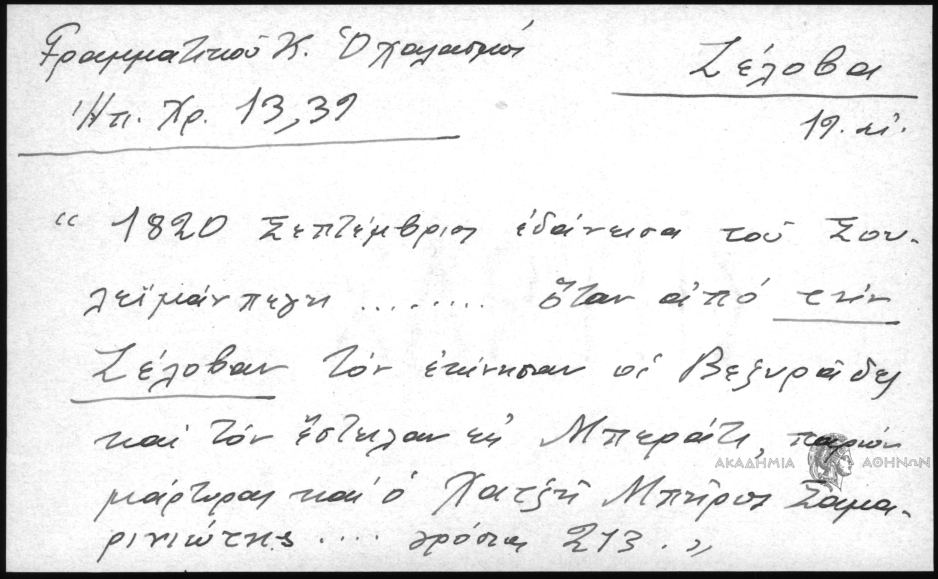 Γραμματικοῦ Κ. Ὁ χαλασμός
Ζέλοβα
Ἠπ. Χρ. 13,39
19. κἑ.
“ 1820 Σεπτέμβριος ἐδάνεισα τοῦ Σου-
λεϊμάνπεγη ........ ὅταν ἀπό τήν
Ζέλοβαν τόν ἐκίνησαν οἱ Βεζυράδες
καί τόν ἔστειλαν εἰς Μπεράτι, παρών
μάρτυρας καί ὁ Χατζῆ Μπῆρος Σαμα-
ρινιώτης .... γρόσια 213.„
ΑΚΑΔΗΜΙΑ ΑΘΗΝΩΝ